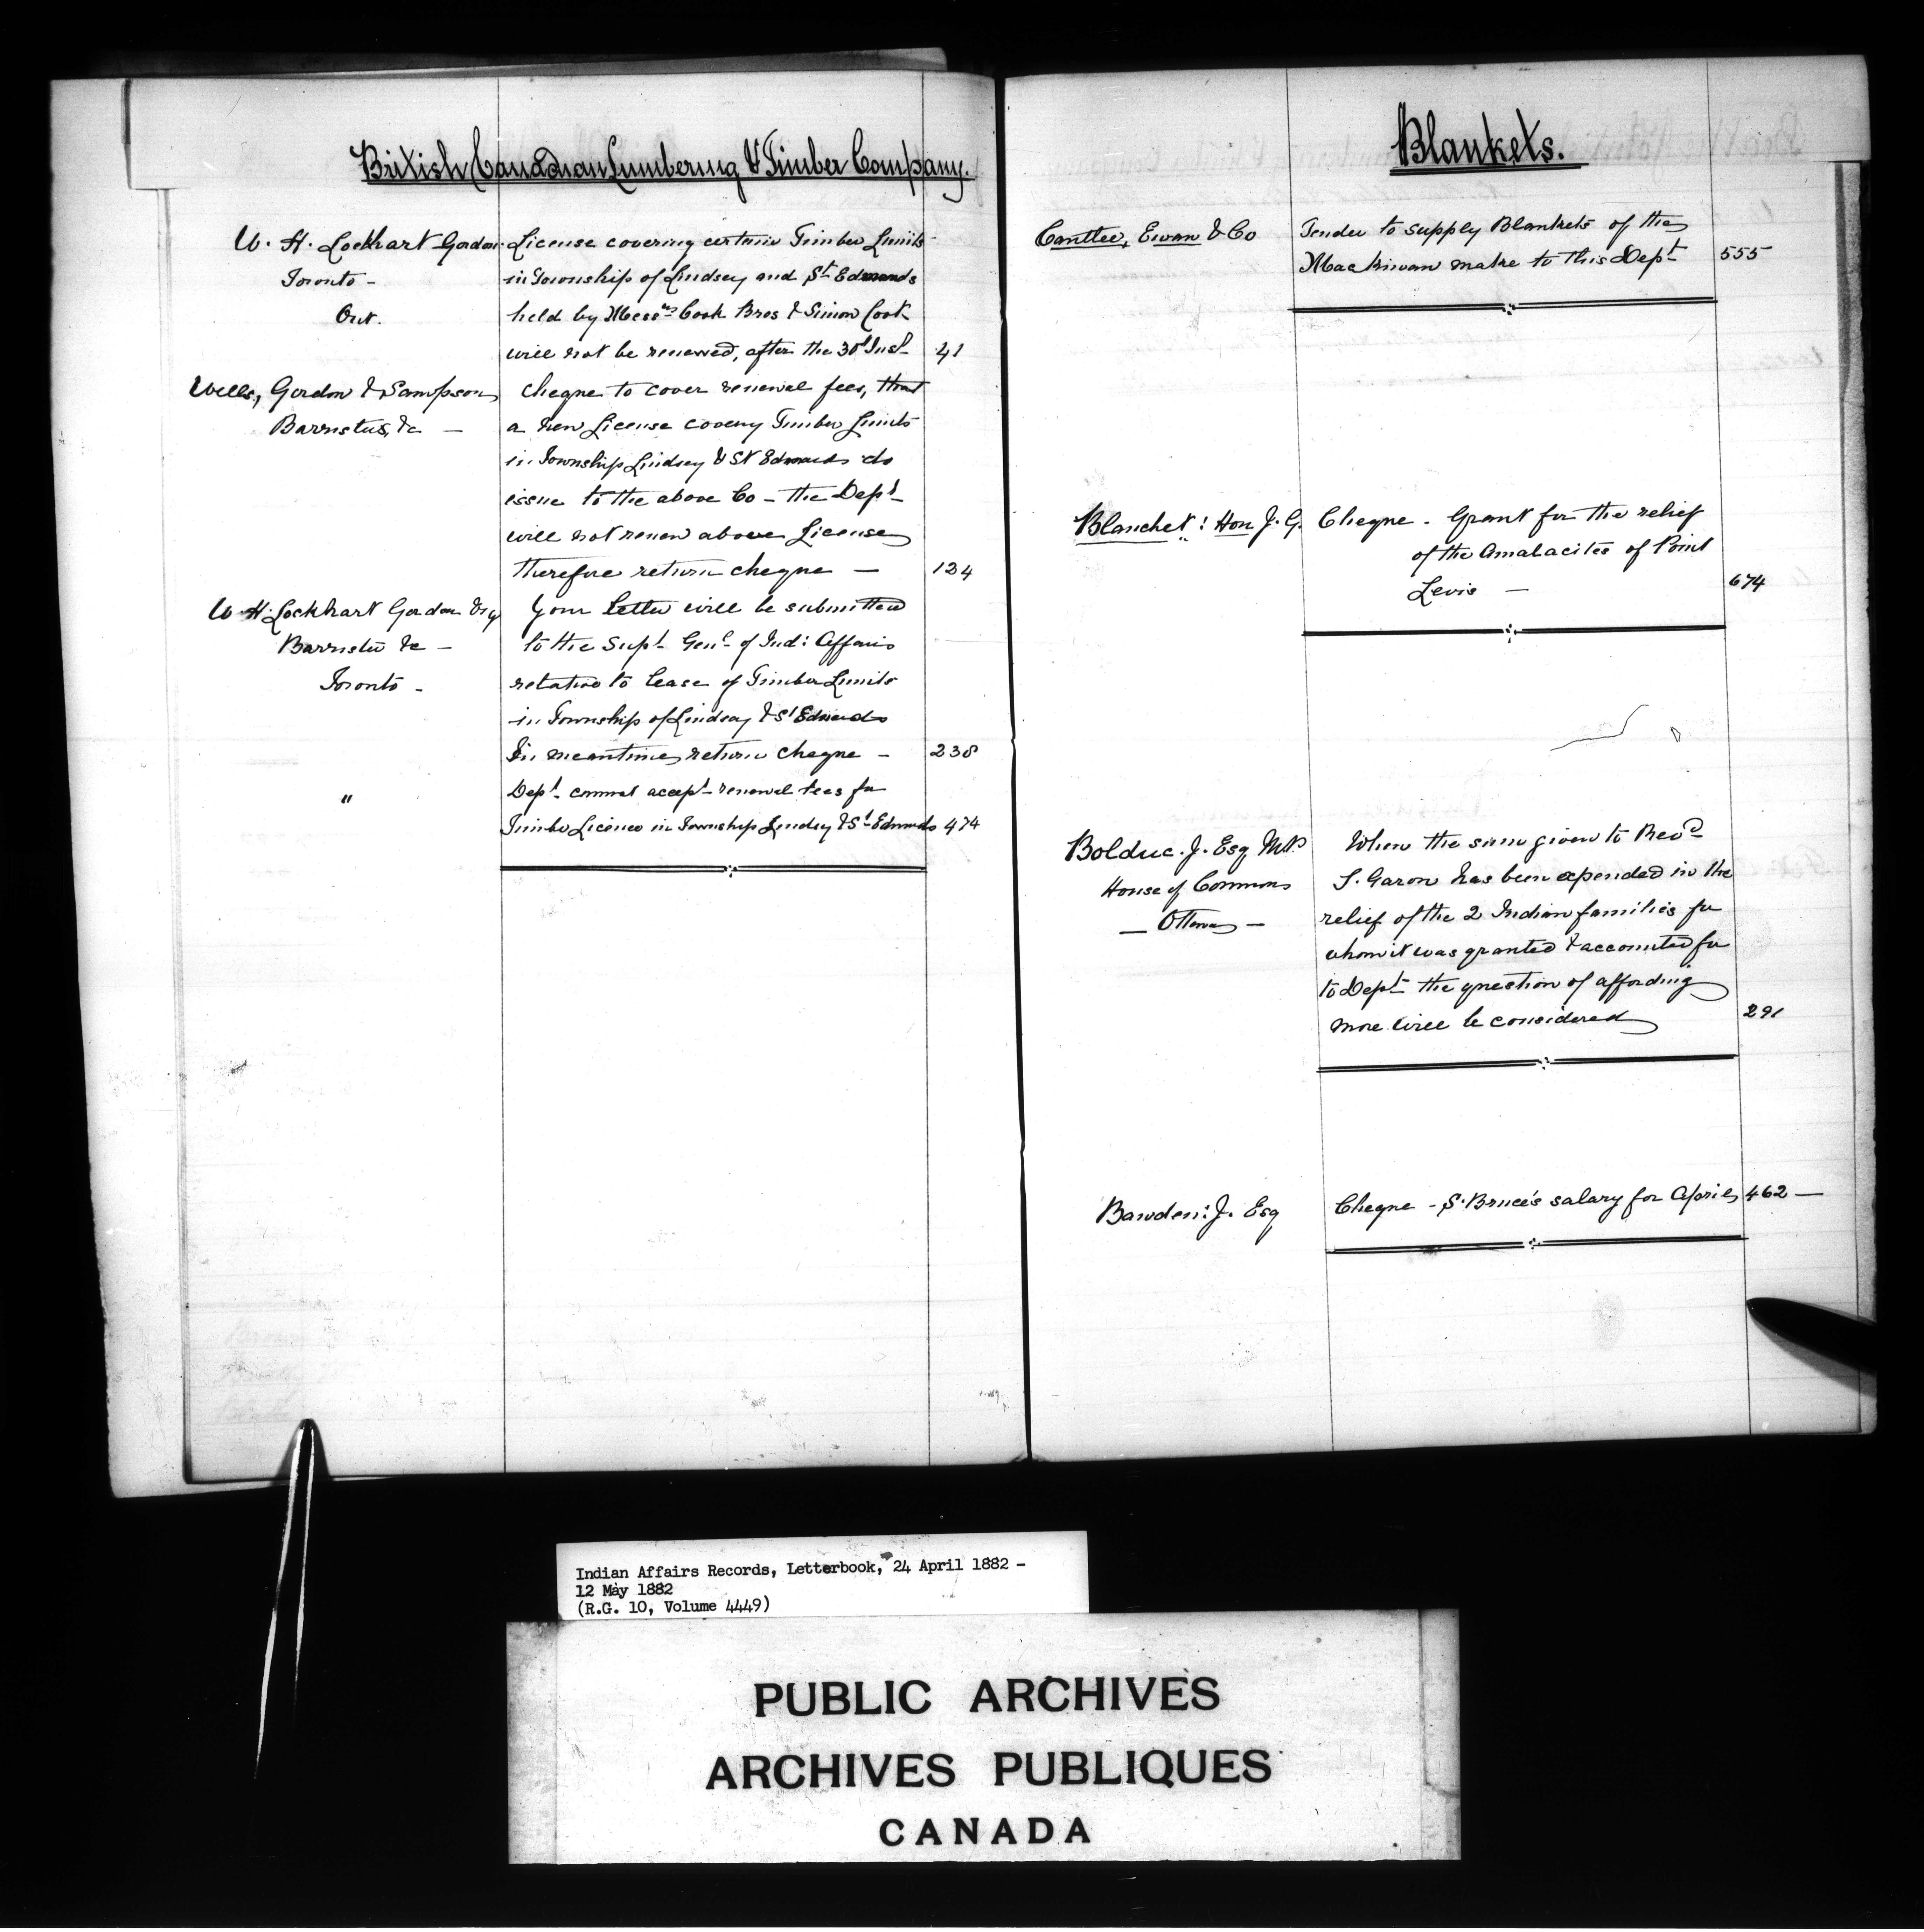 British Canadian Lumbering & Timber Company.
W. H. Lockhart Gordon License covering certain Timber Limits
Toronto - in Township of Lindsey and St Edmunds
Ont. held by Messrs Cook Bros & Simon Cook
will not be renewed, after the 30th Inst 41
Wells, Gordon & Sampson Cheque to cover renewal fees, that
Barristers, &c - a new License covery Timber Limits
in Township Lindsey & St Edmunds do
issue to the above Co - the Dept
will not renew above License
therefore return cheque - 134
W H. Lockhart Gordon Esq Your letter will be submitted
Barrister &c - to the Supt Genl of Ind: Affairs
Toronto - relative to lease of Timber Limits
in Township of Lindsay & St Edmunds
In meantime return cheque - 238
" Dept cannot accept renewal fees for
Timber License in Township Lindsey & St Edmunds 474
Blankets.
Cantlie, Ewan & Co Tender to supply Blankets of the
Mackinaw make to this Dept 555
Blanchet: Hon J. G. Cheque - Grant for the relief
of the Amalacites of Point
Levis - 674
Bolduc. J. Esq M.P. When the sum given to Revd
House of Commons S. Garon has been expended in the
- Ottawa - relief of the 2 Indian families for
whom it was granted & accounted for
to Dept the question of affording
more will be considered 291
Bawden: J. Esq Cheque - S. Bruce's salary for April 462 -
Indian Affairs Records, Letterbook, 24 April 1882 -
12 May 1882
(R.G. 10, Volume 4449)
PUBLIC ARCHIVES
ARCHIVES PUBLIQUES
CANADA